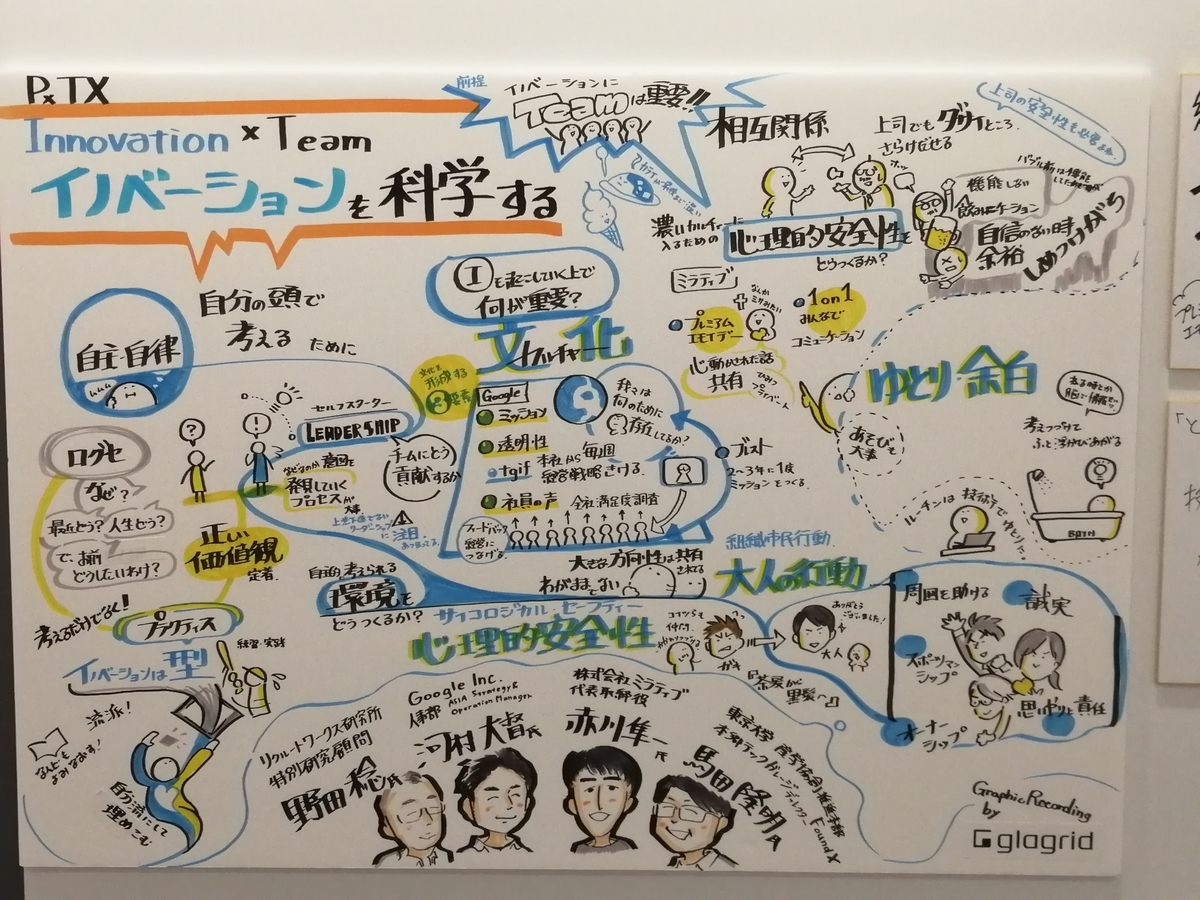 PxTX
Innovation × Team
イノベーションを科学する
前提
イノベーションに
Teamは重要!!
相互関係
上司でもダサイところ
さらけだせる
上司の安全性も必要
機能しない
飲みニケーション
自信のない時
余裕
しめつけがち
濃いカルチャーに
入るための
心理的安全性を
どうつくるか?
自主・自律
自分の頭で
考える
ために
①を起こしていく上で
何が重要?
文化
カルチャー
文化を
形成する
③要素
Google
ミッション
透明性
tgif 本社から毎週
経営戦略きける
社員の声
会社満足度調査
フィードバック
経営に
つなげる
我々は
何のために
存在してるか?
ブレスト
2〜3年に1度
ミッションをつくる
大きな方向性は共有
されてる
ミラティブ
プレミアム
エモイデー
心動かされた話
共有
プライベート
1on1
みんなで
コミュニケーション
ゆとり 余白
あそびが
大事
考えつづけて
ふと浮かびあがる
ルーチンは技術で
ゆとりに。
BATH
セルフスターター
LEADERSHIP
チームにどう
貢献するか
意図を
発見していく
プロセスが
大事
に注目
ログセ
なぜ?
最近どう?人生どう?
で、お前
どうしたいわけ?
正しい
価値観
定着
考えるだけでなく!
プラクティス
練習・実践
イノベーションは型
流派!
自分流にして
埋めこむ
自律的考えられる
環境を
どうつくるか?
わがままでない
サイコロジカル・セーフティー
心理的安全性
組織市民行動
大人の行動
ガキ
大人
ありがとう
ございました!
「茶髪から
黒髪へ」
周囲を助ける
誠実
スポーツマン
シップ
思いやりと責任
オーナー
シップ
リクルートワークス研究所
特別研究顧問
野田 稔氏
Google Inc.
人事部 ASIA Strategy &
Operation Manager
河村 大督氏
株式会社ミラティブ
代表取締役
赤川 隼一氏
東京大学 産学協創推進本部
本郷テックガレージ ディレクター FoundX
馬田 隆明氏
Graphic Recording
by
glagrid